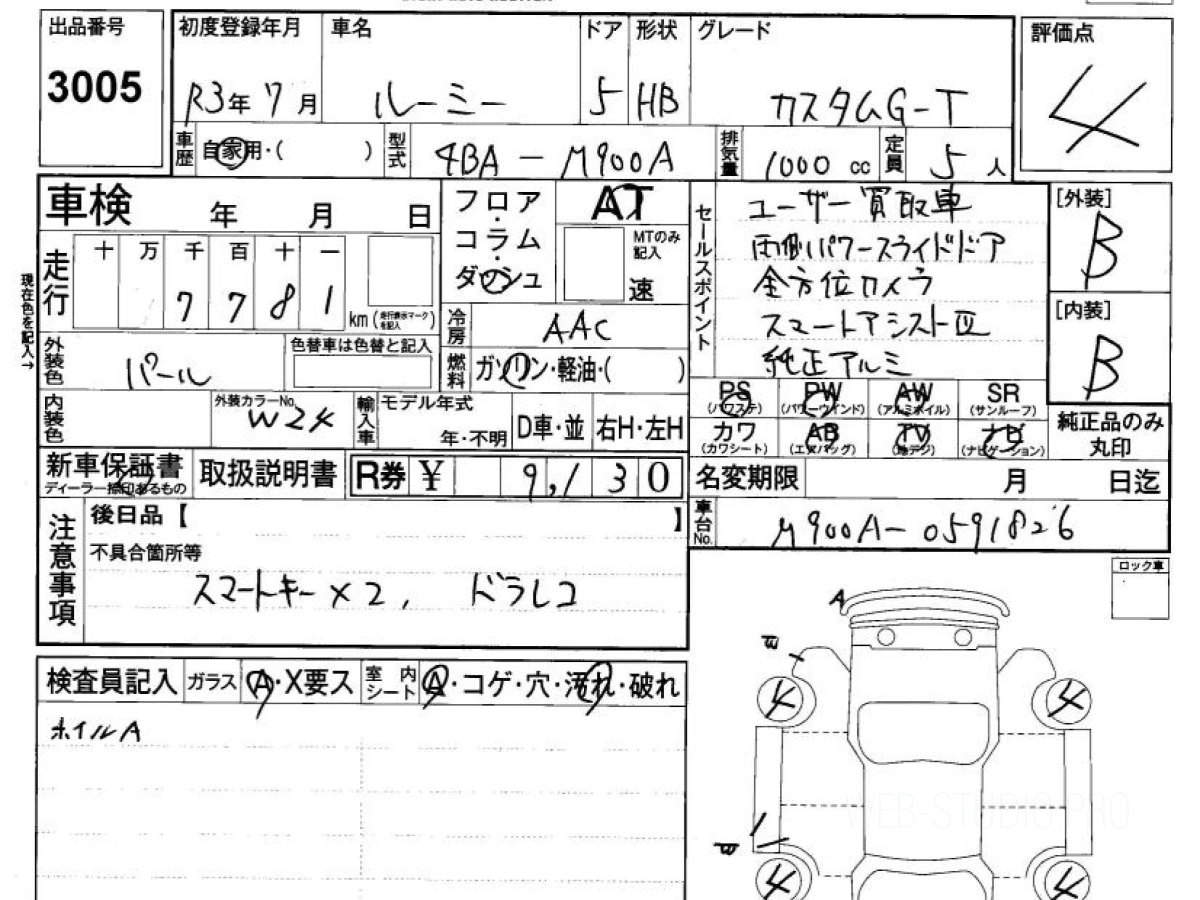 出品番号 初度登録年月 車名 ドア 形状 グレード 評価点
3005 R3年 7月 ルーミー 5 HB カスタムG-T 4
車歴 自家用・( ) 型式 4BA-M900A 排気量 1000 cc 定員 5人
車検 年 月 日 フロア・コラム・ダッシュ AT セールスポイント ユーザー買取車 [外装]
MTのみ記入 両側パワースライドドア B
走行 十 万 千 百 十 一 速 全方位カメラ [内装]
7 7 8 1 km (走行表示マークを記入) 冷房 AAC スマートアシストⅢ B
現在色を記入→
外装色 パール 色替車は色替と記入 燃料 ガソリン・軽油・( ) 純正アルミ
PS (パワステ) PW (パワーウインド) AW (アルミホイル) SR (サンルーフ) 純正品のみ丸印
内装色 外装カラーNo. W24 輸入車 モデル年式 年・不明 D車・並 右H・左H
カワ (カワシート) AB (エアバッグ) TV (地デジ) ナビ (ナビゲーション)
新車保証書 ディーラー捺印あるもの 取扱説明書 R券 ¥ 9,130 名変期限 月 日迄
注意事項 後日品【 】 車台No. M900A-0591826
不具合箇所等
スマートキー×2, ドラレコ
ロック車
検査員記入 ガラス A・X要ス 室内シート A・コゲ・穴・汚れ・破れ
ホイルA
A
4 4
4 4
WEB-STUDIO.PRO